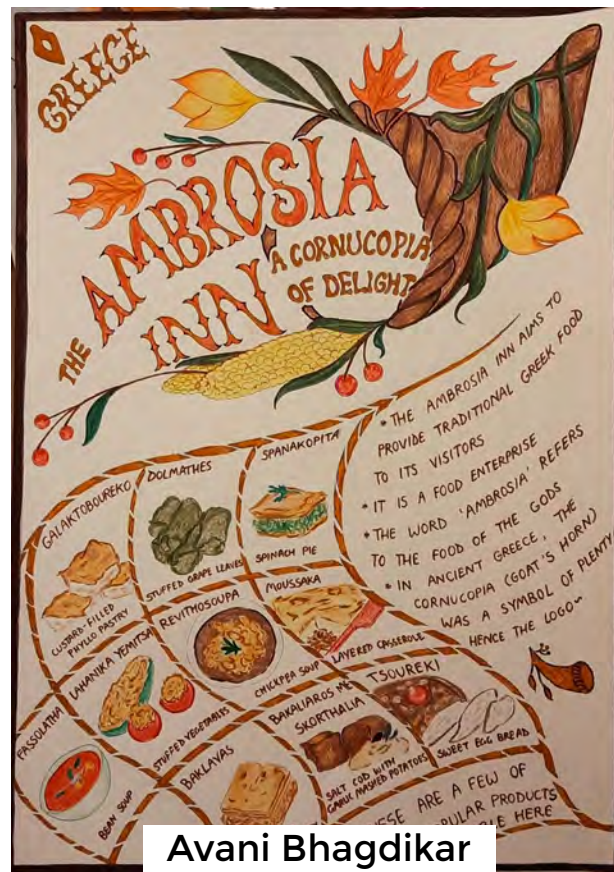 GREEGE
THE AMBROSIA
INN
A CORNUCOPIA
OF DELIGHT
* THE AMBROSIA INN AIMS TO
PROVIDE TRADITIONAL GREEK FOOD
TO ITS VISITORS
* IT IS A FOOD ENTERPRISE
* THE WORD 'AMBROSIA' REFERS
TO THE FOOD OF THE GODS
* IN ANCIENT GREECE, THE
CORNUCOPIA (GOAT'S HORN)
WAS A SYMBOL OF PLENTY
HENCE THE LOGO~
GALAKTOBOUREKO
CUSTARD-FILLED
PHYLLO PASTRY
DOLMATHES
STUFFED GRAPE LEAVES
SPANAKOPITA
SPINACH PIE
FASSOLATHA
BEAN SOUP
LAHANIKA YEMITSA
STUFFED VEGETABLES
REVITHOSOUPA
CHICKPEA SOUP
MOUSSAKA
LAYERED CASSEROLE
BAKLAVAS
BAKALIAROS ME
SKORTHALIA
SALT COD WITH
GARLIC MASHED POTATOES
TSOUREKI
SWEET EGG BREAD
ARE A FEW OF
PRODUCTS
HERE
Avani Bhagdikar